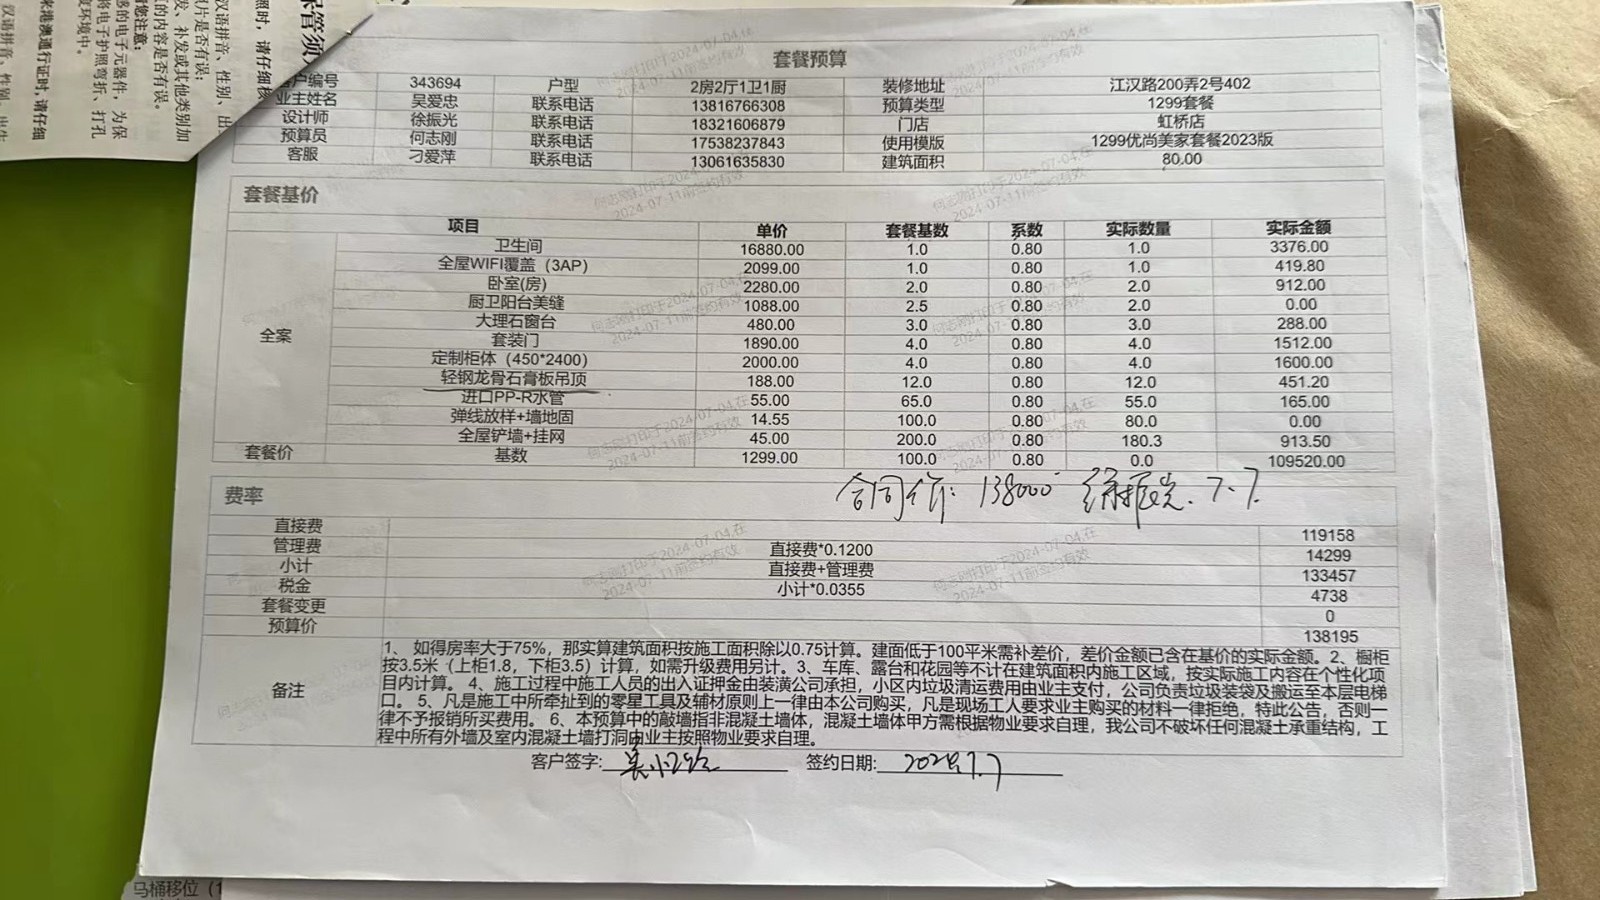 套餐预算
客户编号 343694 户型 2房2厅1卫1厨 装修地址 江汉路200弄2号402
业主姓名 吴爱忠 联系电话 13816766308 预算类型 1299套餐
设计师 徐振光 联系电话 18321606879 门店 虹桥店
预算员 何志刚 联系电话 17538237843 使用模版 1299优尚美家套餐2023版
客服 刁爱萍 联系电话 13061635830 建筑面积 80.00
套餐基价
项目 单价 套餐基数 系数 实际数量 实际金额
卫生间 16880.00 1.0 0.80 1.0 3376.00
全屋WIFI覆盖（3AP） 2099.00 1.0 0.80 1.0 419.80
卧室(房) 2280.00 2.0 0.80 2.0 912.00
厨卫阳台美缝 1088.00 2.5 0.80 2.0 0.00
大理石窗台 480.00 3.0 0.80 3.0 288.00
全案 套装门 1890.00 4.0 0.80 4.0 1512.00
定制柜体（450*2400） 2000.00 4.0 0.80 4.0 1600.00
轻钢龙骨石膏板吊顶 188.00 12.0 0.80 12.0 451.20
进口PP-R水管 55.00 65.0 0.80 55.0 165.00
弹线放样+墙地固 14.55 100.0 0.80 80.0 0.00
全屋铲墙+挂网 45.00 200.0 0.80 180.3 913.50
套餐价 基数 1299.00 100.0 0.80 0.0 109520.00
合同价：138000 徐振光 7.7
费率
直接费 119158
管理费 直接费*0.1200 14299
小计 直接费+管理费 133457
税金 小计*0.0355 4738
套餐变更 0
预算价 138195
备注
1、 如得房率大于75%，那实算建筑面积按施工面积除以0.75计算。建面低于100平米需补差价，差价金额已含在基价的实际金额。2、橱柜
按3.5米（上柜1.8，下柜3.5）计算，如需升级费用另计。3、车库、露台和花园等不计在建筑面积内施工区域，按实际施工内容在个性化项
目内计算。 4、施工过程中施工人员的出入证押金由装潢公司承担，小区内垃圾清运费用由业主支付，公司负责垃圾装袋及搬运至本层电梯
口。 5、凡是施工中所牵扯到的零星工具及辅材原则上一律由本公司购买，凡是现场工人要求业主购买的材料一律拒绝，特此公告，否则一
律不予报销所买费用。 6、本预算中的敲墙指非混凝土墙体，混凝土墙体甲方需根据物业要求自理，我公司不破坏任何混凝土承重结构，工
程中所有外墙及室内混凝土墙打洞由业主按照物业要求自理。
客户签字: 签约日期: 2024.7.7
何志刚打印于2024-07-04,在
2024-07-11前签约有效
马桶移位（1